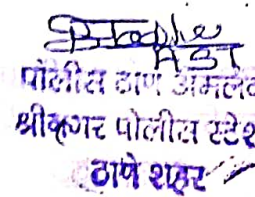 ASI
पोलीस ठाणे अमलद
श्रीनगर पोलीस स्टेश
ठाणे शहर